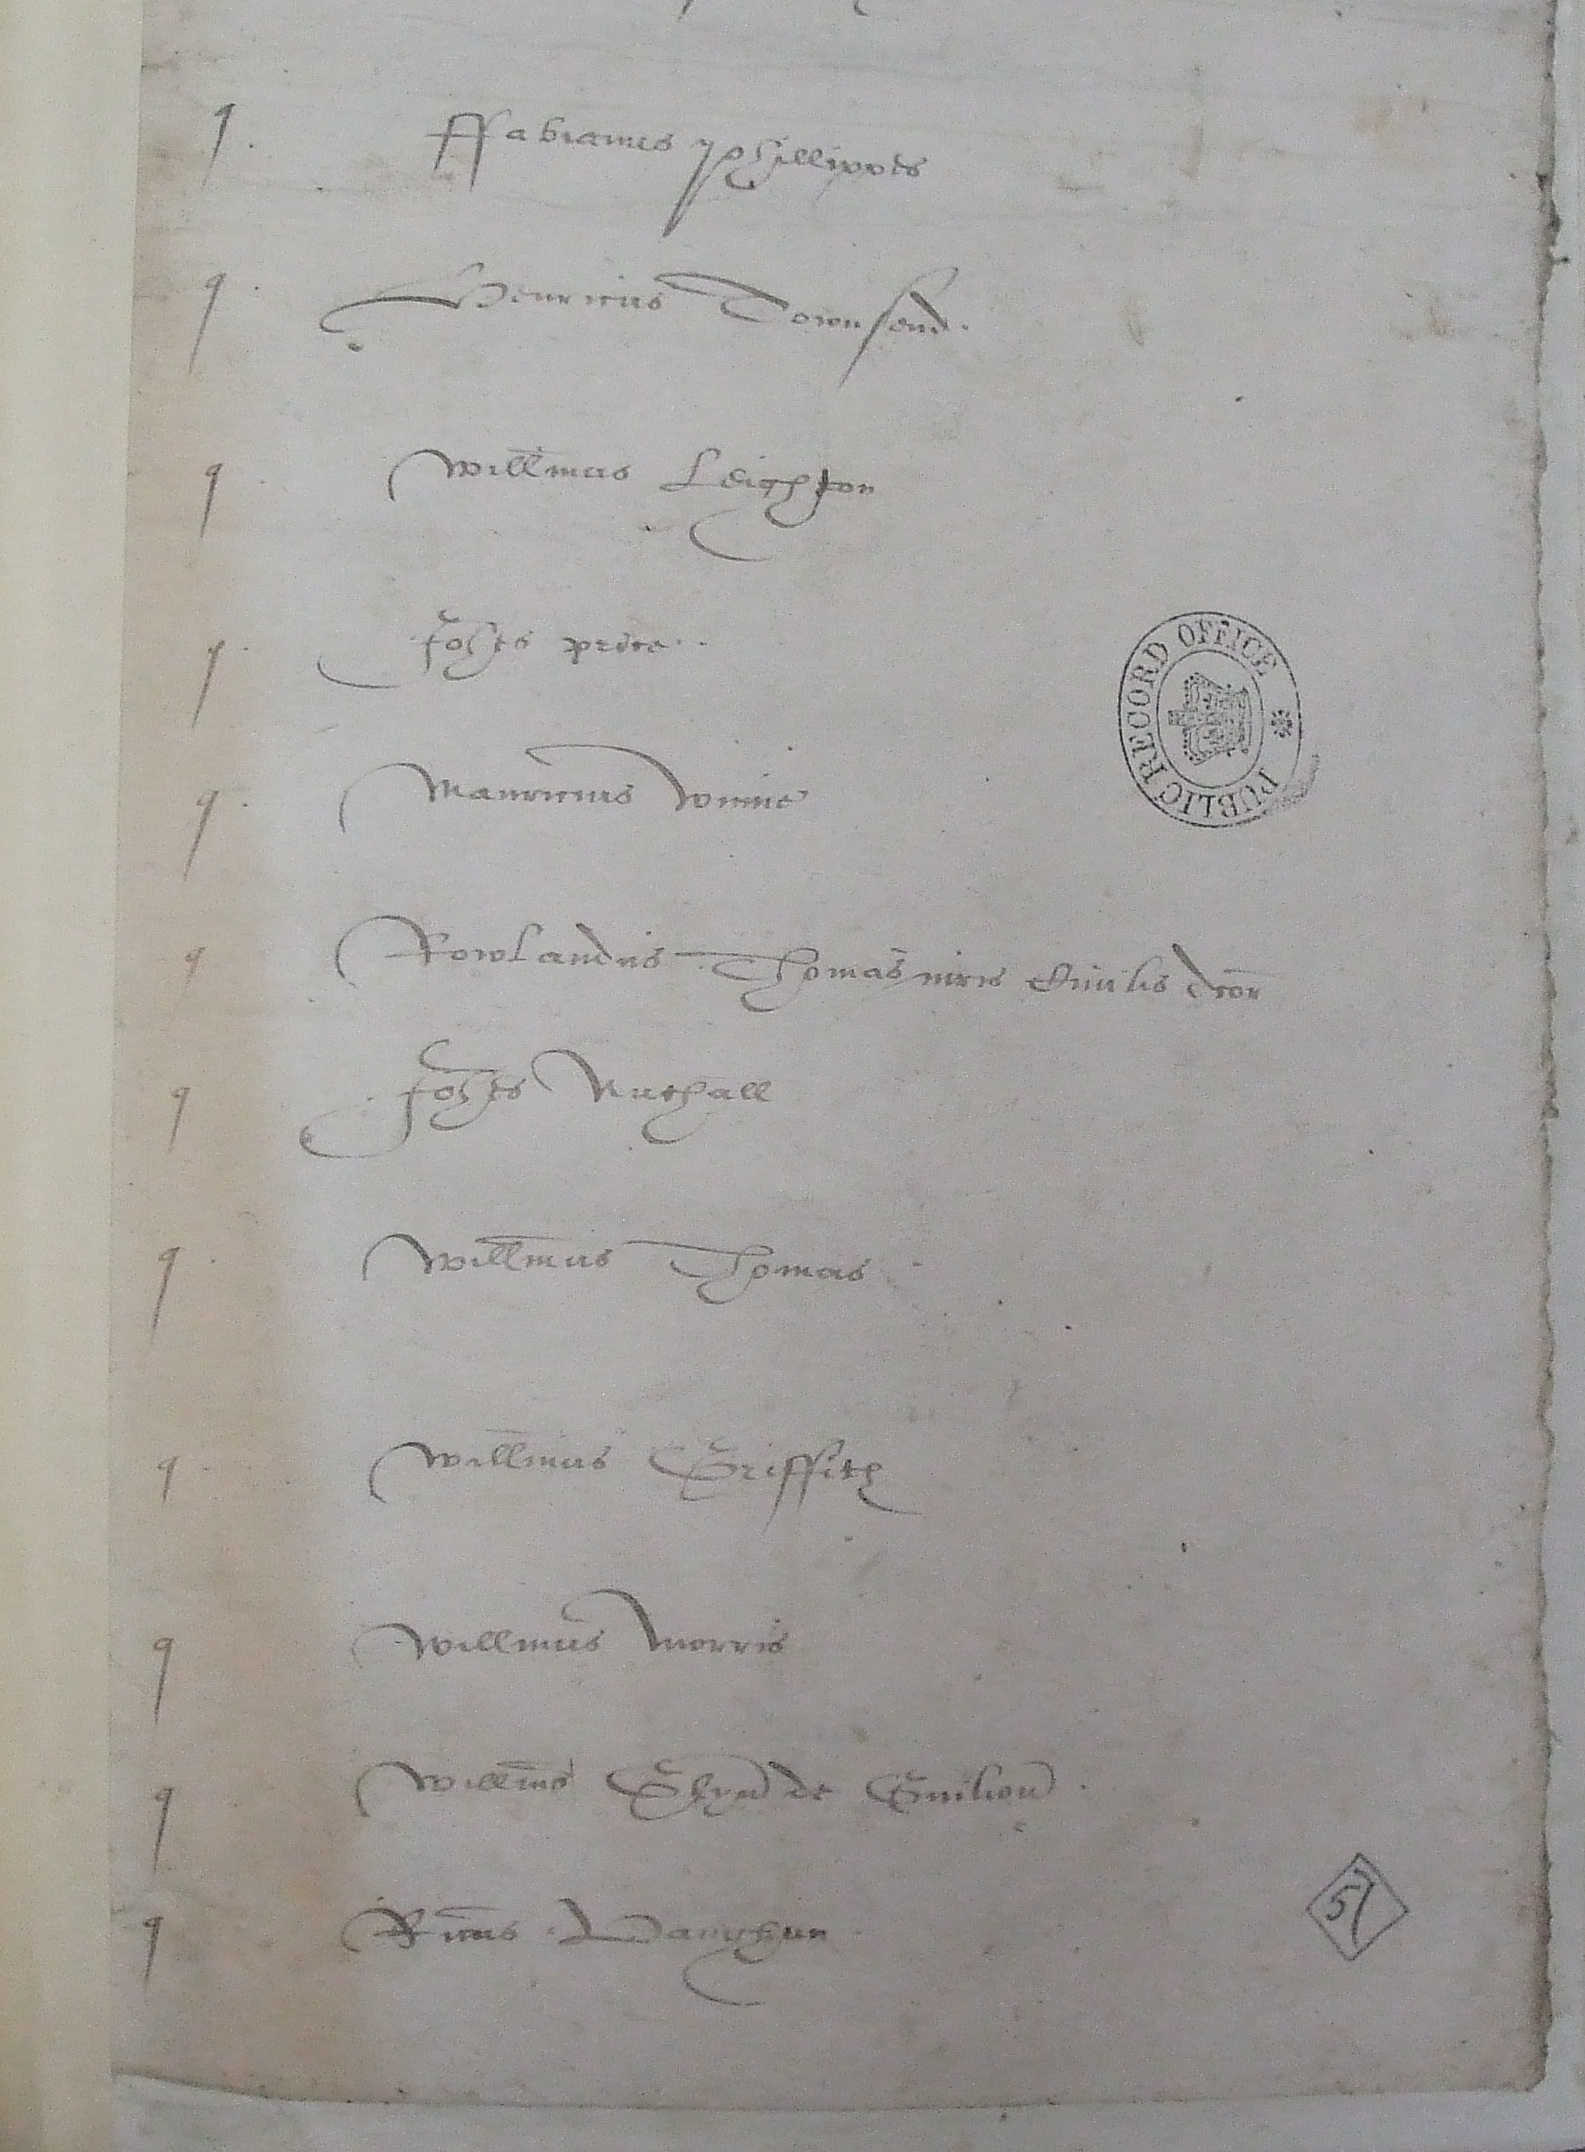 q. ffabianus Phillippes
q. Henricus Townsend.
q. Willmus Leighton
q. Johes price..
q. Mauricius Winne
q. Rowlandus Thomas iuris Civilis dcor
q Johes Nuthall
q. Willmus Thomas
q. Willmus Griffith
q Willmus Morris
q Willmus Glyn de
q Ricus Vaughan
PUBLIC RECORD OFFICE
57